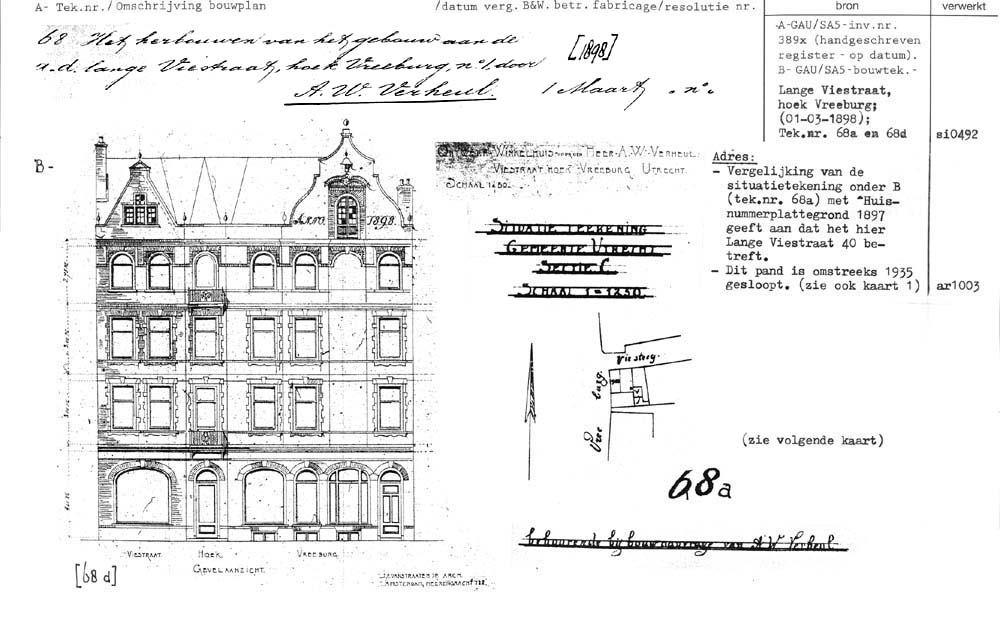 A- Tek.nr./Omschrijving bouwplan /datum verg. B&W. betr. fabricage/resolutie nr. bron verwerkt
68 Het herbouwen van het gebouw aan de
a.d. lange Viestraat, hoek Vreeburg, no 1, door [1898]
A. W. Verheul. 1 Maart no.
A-GAU/SA5-inv.nr.
389x (handgeschreven
register - op datum).
B- GAU/SA5-bouwtek.-
Lange Viestraat,
hoek Vreeburg;
(01-03-1898);
Tek.nr. 68a en 68d si0492
B-
Anno 1898
Viestraat Hoek Vreeburg
Gevelaanzicht.
[68 d]
Amsterdam, Heerengracht
Winkelhuis Heer A.W. Verheul.
Viestraat hoek Vreeburg, Utrecht.
Schaal 1:50.
Situatie Teekening
Gemeente Utrecht
Sectie C
Schaal 1=1250.
Viesteeg.
Vree burg.
68a
behoorende bij bouwaanvrage van A W Verheul.
Adres:
- Vergelijking van de
situatietekening onder B
(tek.nr. 68a) met "Huis-
nummerplattegrond 1897
geeft aan dat het hier
Lange Viestraat 40 be-
treft.
- Dit pand is omstreeks 1935
gesloopt. (zie ook kaart 1) ar1003
(zie volgende kaart)